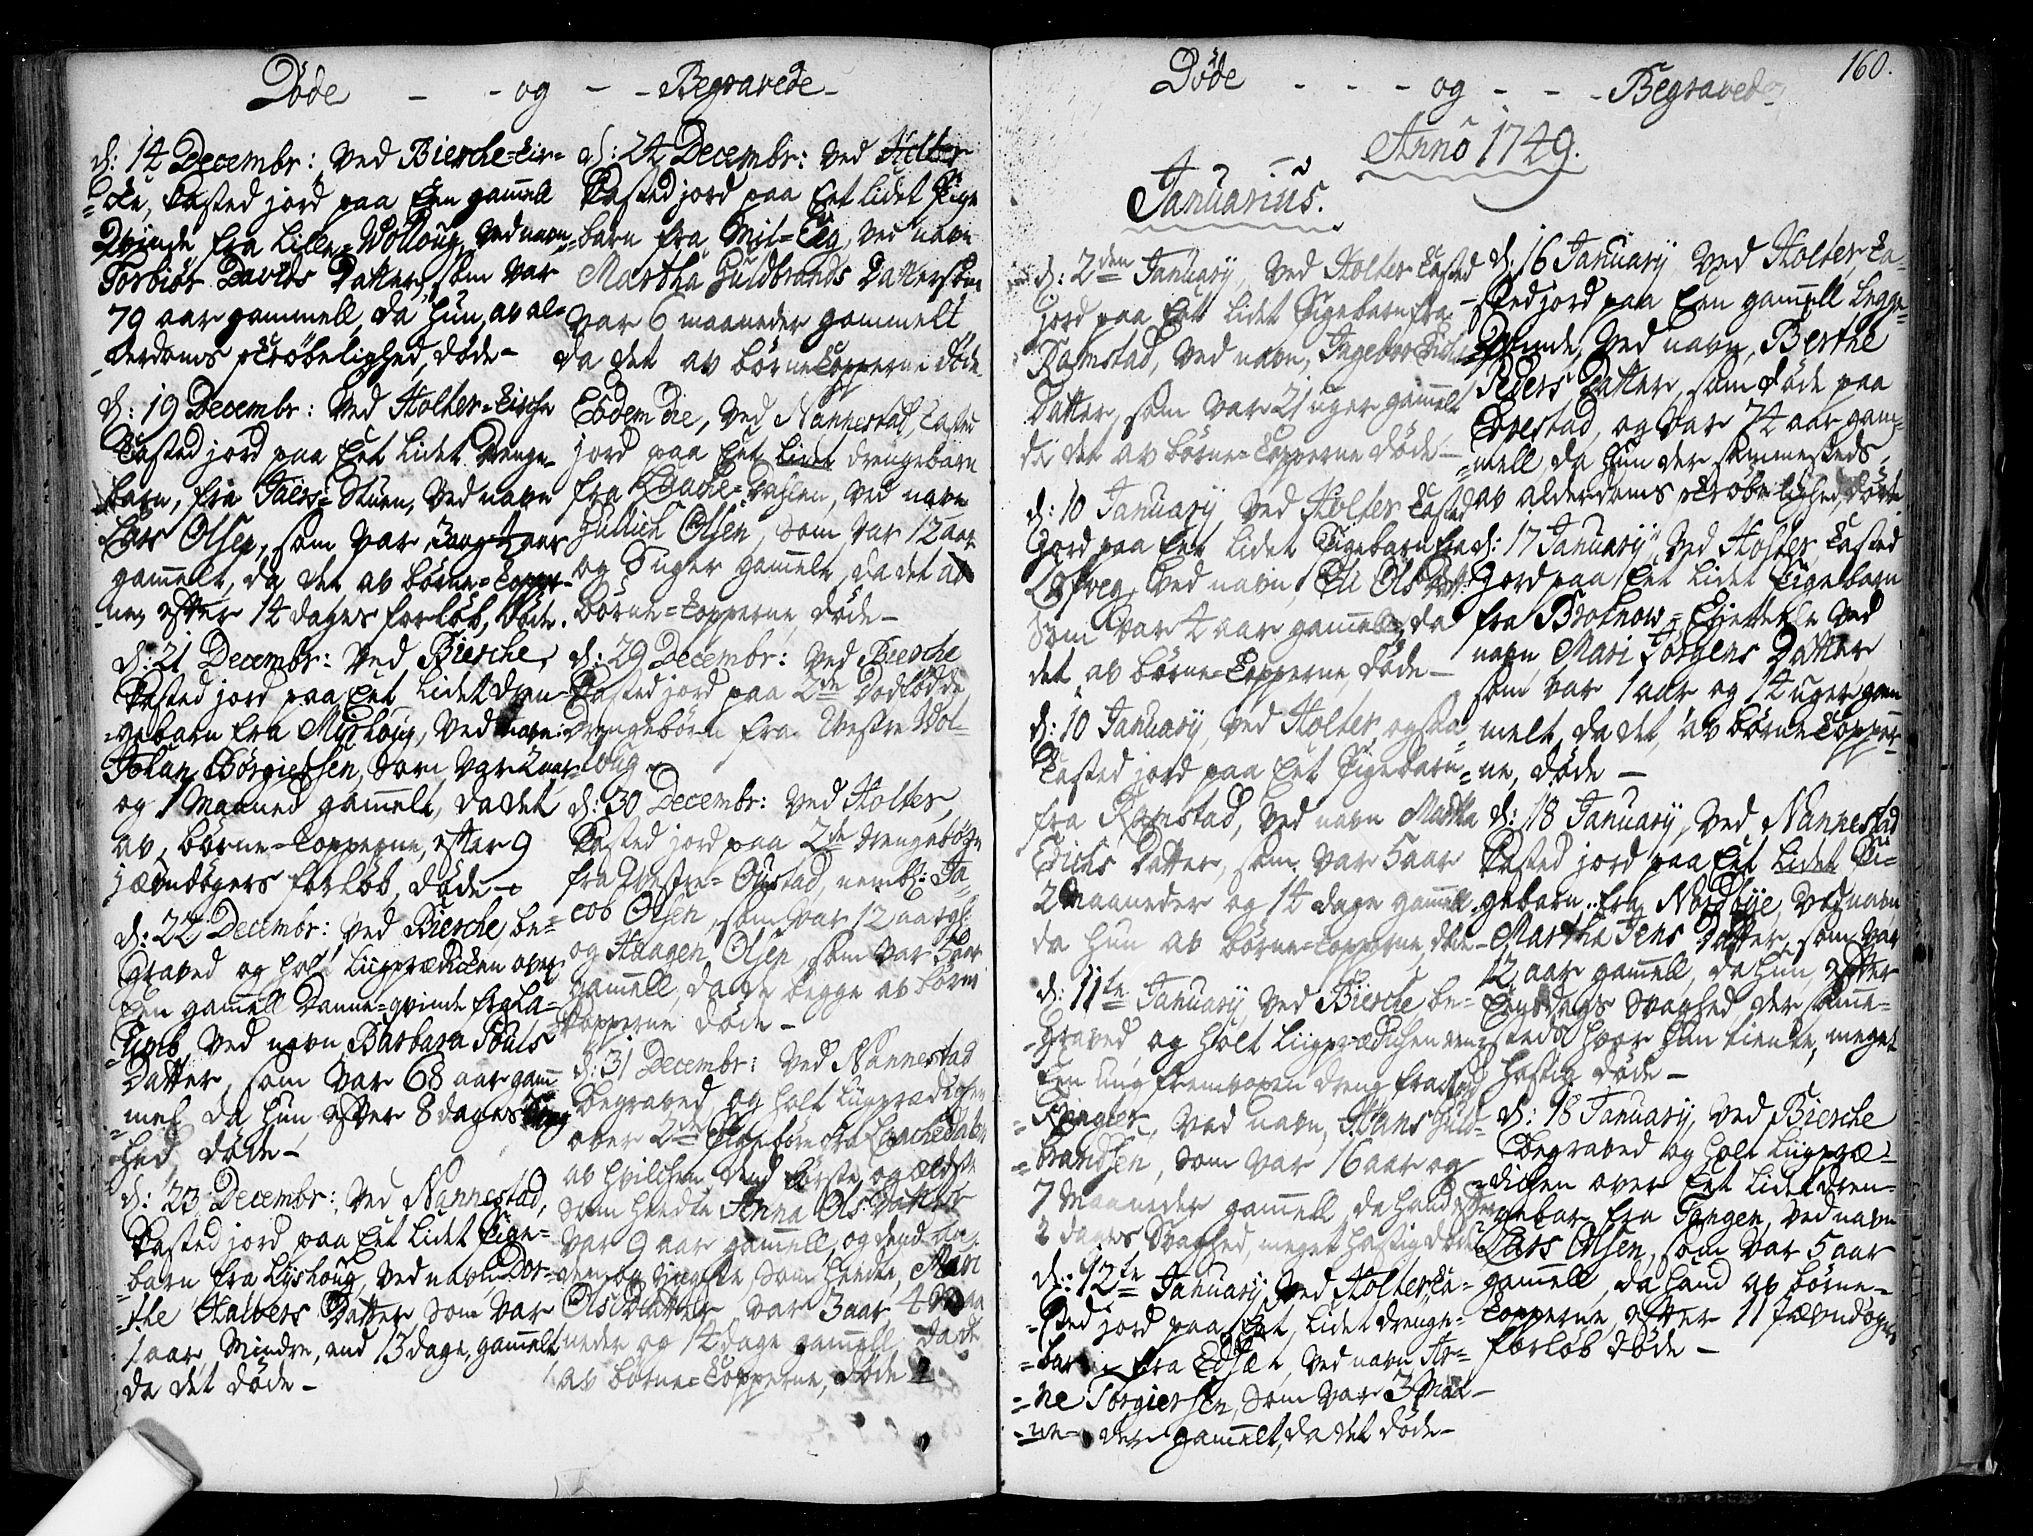 Døde - - og - - Begravede -
d: 14 Decembr: ved Biercke=Kir=
=cke, Kasted jord paa Een gamell
Qvinde fra Lille=Wolloug, ved navn
Torbiør Davids Datter, som var
79 aar gammell, da hun av al=
=derdoms skrøbelighed, døde -
d: 19 Decembr: ved Holter=Kircke
Kasted jord paa Eet lidet Drenge=
barn, fra Stuen, ved navn
Lars Olsen, som var aar
gamelt, da det av børne=Kopper=
=ne, efter 14 dages forløb, døde.
d: 21 Decembr: ved Biercke,
Kasted jord paa Eet lidet dren=
=gebarn fra Myrhoug, ved navn
Johan Børgiersen, som var 2 aar
og 1 Maaned gamelt, da det
av børne=Kopperne, efter 9
jævndøgers forløb, døde -
d: 22 Decembr: ved Biercke be=
graved og holt Liigprædicken over
Een gamell Danne=qvinde fra La=
ved navn Barbara Pouls
Datter, som var 68 aar gam=
=mel, da hun efter 8 dages Svag
=hed, døde -
d: 23 Decembr: ved Nannestad,
Kasted jord paa Eet lidet Pige=
barn fra Lyshoug, ved navn Dor=
=the Halvers Datter som var
1 aar, Mindre, end 13 dage, gamelt
da det døde -
d: 24 Decembr: ved Holter
Kasted jord paa Eet lidet Pige
=barn fra Mil=Eeg, ved navn
Martha Guldbrands Datter som
var 6 maaneder gammelt
da det av børneKopperne døde
Eodem die, ved Nannestad, Kasted
jord paa Eet lidet drengebarn
fra Bache=Dahlen, ved navn
Gullich Olsen, som var 12 aar
og 5 uger gamelt, da det av
børne=Kopperne, døde -
d: 29 Decembr: ved Biercke
Kasted jord paa 2de Dødfødde
Drengebørn fra Westre Wol=
=loug -
d: 30 Decembr: ved Holter,
Kasted jord paa 2de drengebørn
fra Westre=Ougstad, nembl: Ja=
cob Olsen, som var 12 aar gl:
og Haagen Olsen, som var 5 aar
gamell, da de begge av børne
Kopperne døde -
d: 31 Decembr: ved Nannestad
begraved, og holt Liigprædicken
over 2de Pigebørn fra Bache Dalen
av hvilcken dend første og ældste
som heedte Anna Ols Datter
var 9 aar gamell, og dend an=
den, og yngste, som heedte, Mari
Ols Datter, var 3 aar, 4 Maa
neder og 14 dage gamell, da de
av børne=Kopperne, døde -
160.
Døde - - - og - - - Begravede
Anno 1749.
Januarius.
d: 2den January, ved Holter Kasted
jord paa Eet lidet Pigebarn fra
Ramstad, ved navn, Ingebor Erichs
Datter, som var 21 uger gamelt
da det av børne=Kopperne døde -
d: 10 January, ved Holter Kasted
Jord paa Eet lidet Pigebarn fra
Løfveg, ved navn Eli Ols Datt:
som var 4 aar gamell, da
det av børne=Kopperne, døde -
d: 10 January, ved Holter, ogsaa
Kasted jord paa Eet Pigebarn
fra Ramstad, ved navn Martha
Erichs Datter, som var 5 aar
2 Maaneder og 14 dage gamell,
da hun av børne=Kopperne, døde -
d: 11te January, ved Biercke, be=
=graved, og holt Liigprædicken over
Een ung fremvoxen dreng fra
=Ringler, ved navn, Hans Guld=
=brandsen, som var 16 aar og
7 Maaneder gamell, da hand efter
2 dages Svaghed, meget hastig døde
d: 12te January, ved Holter, Ka=
=sted jord paa Eet, lidet drenge=
=barn fra ved navn Ar=
=ne Torgiersen, som var 3 Maa=
=ne= der gamelt, da det døde -
d: 16 January ved Holter, Ka=
=sted jord paa Een gamell Legge=
Qvinde, ved navn, Berthe
Peders Datter, som døde paa
Tørestad, og var 74 aar gam=
=mell da hun der sammesteds,
av alderdoms skrøbelighed, døde.
d: 17 January, ved Holter Kasted
Jord paa Eet lidet Pigebarn
fra Brotnow=Eiettelle ved
navn Mari Jørgens Datter
som var 1 aar og 14 uger gam
melt, da det, av børne Kopper=
=ne, døde -
d: 18 January, ved Nannestad
Kasted jord paa Eet lidet Pi=
gebarn, fra Nordbye, ved navn,
Martha Jens Datter, som var
12 aar gamell, da hun, efter
Svaghed, der samme=
steds hvor hun tiente, meget
hastig døde -
d: 18 January, ved Biercke
begraved og holt Liigpræ=
=dicken over Eet lidet dren=
gebar fra Tangen, ved navn
Lars Olsen, som var 5 aar
gamell, da hand av børne=
Kopperne, efter 11 jævndøgers
forløb døde -